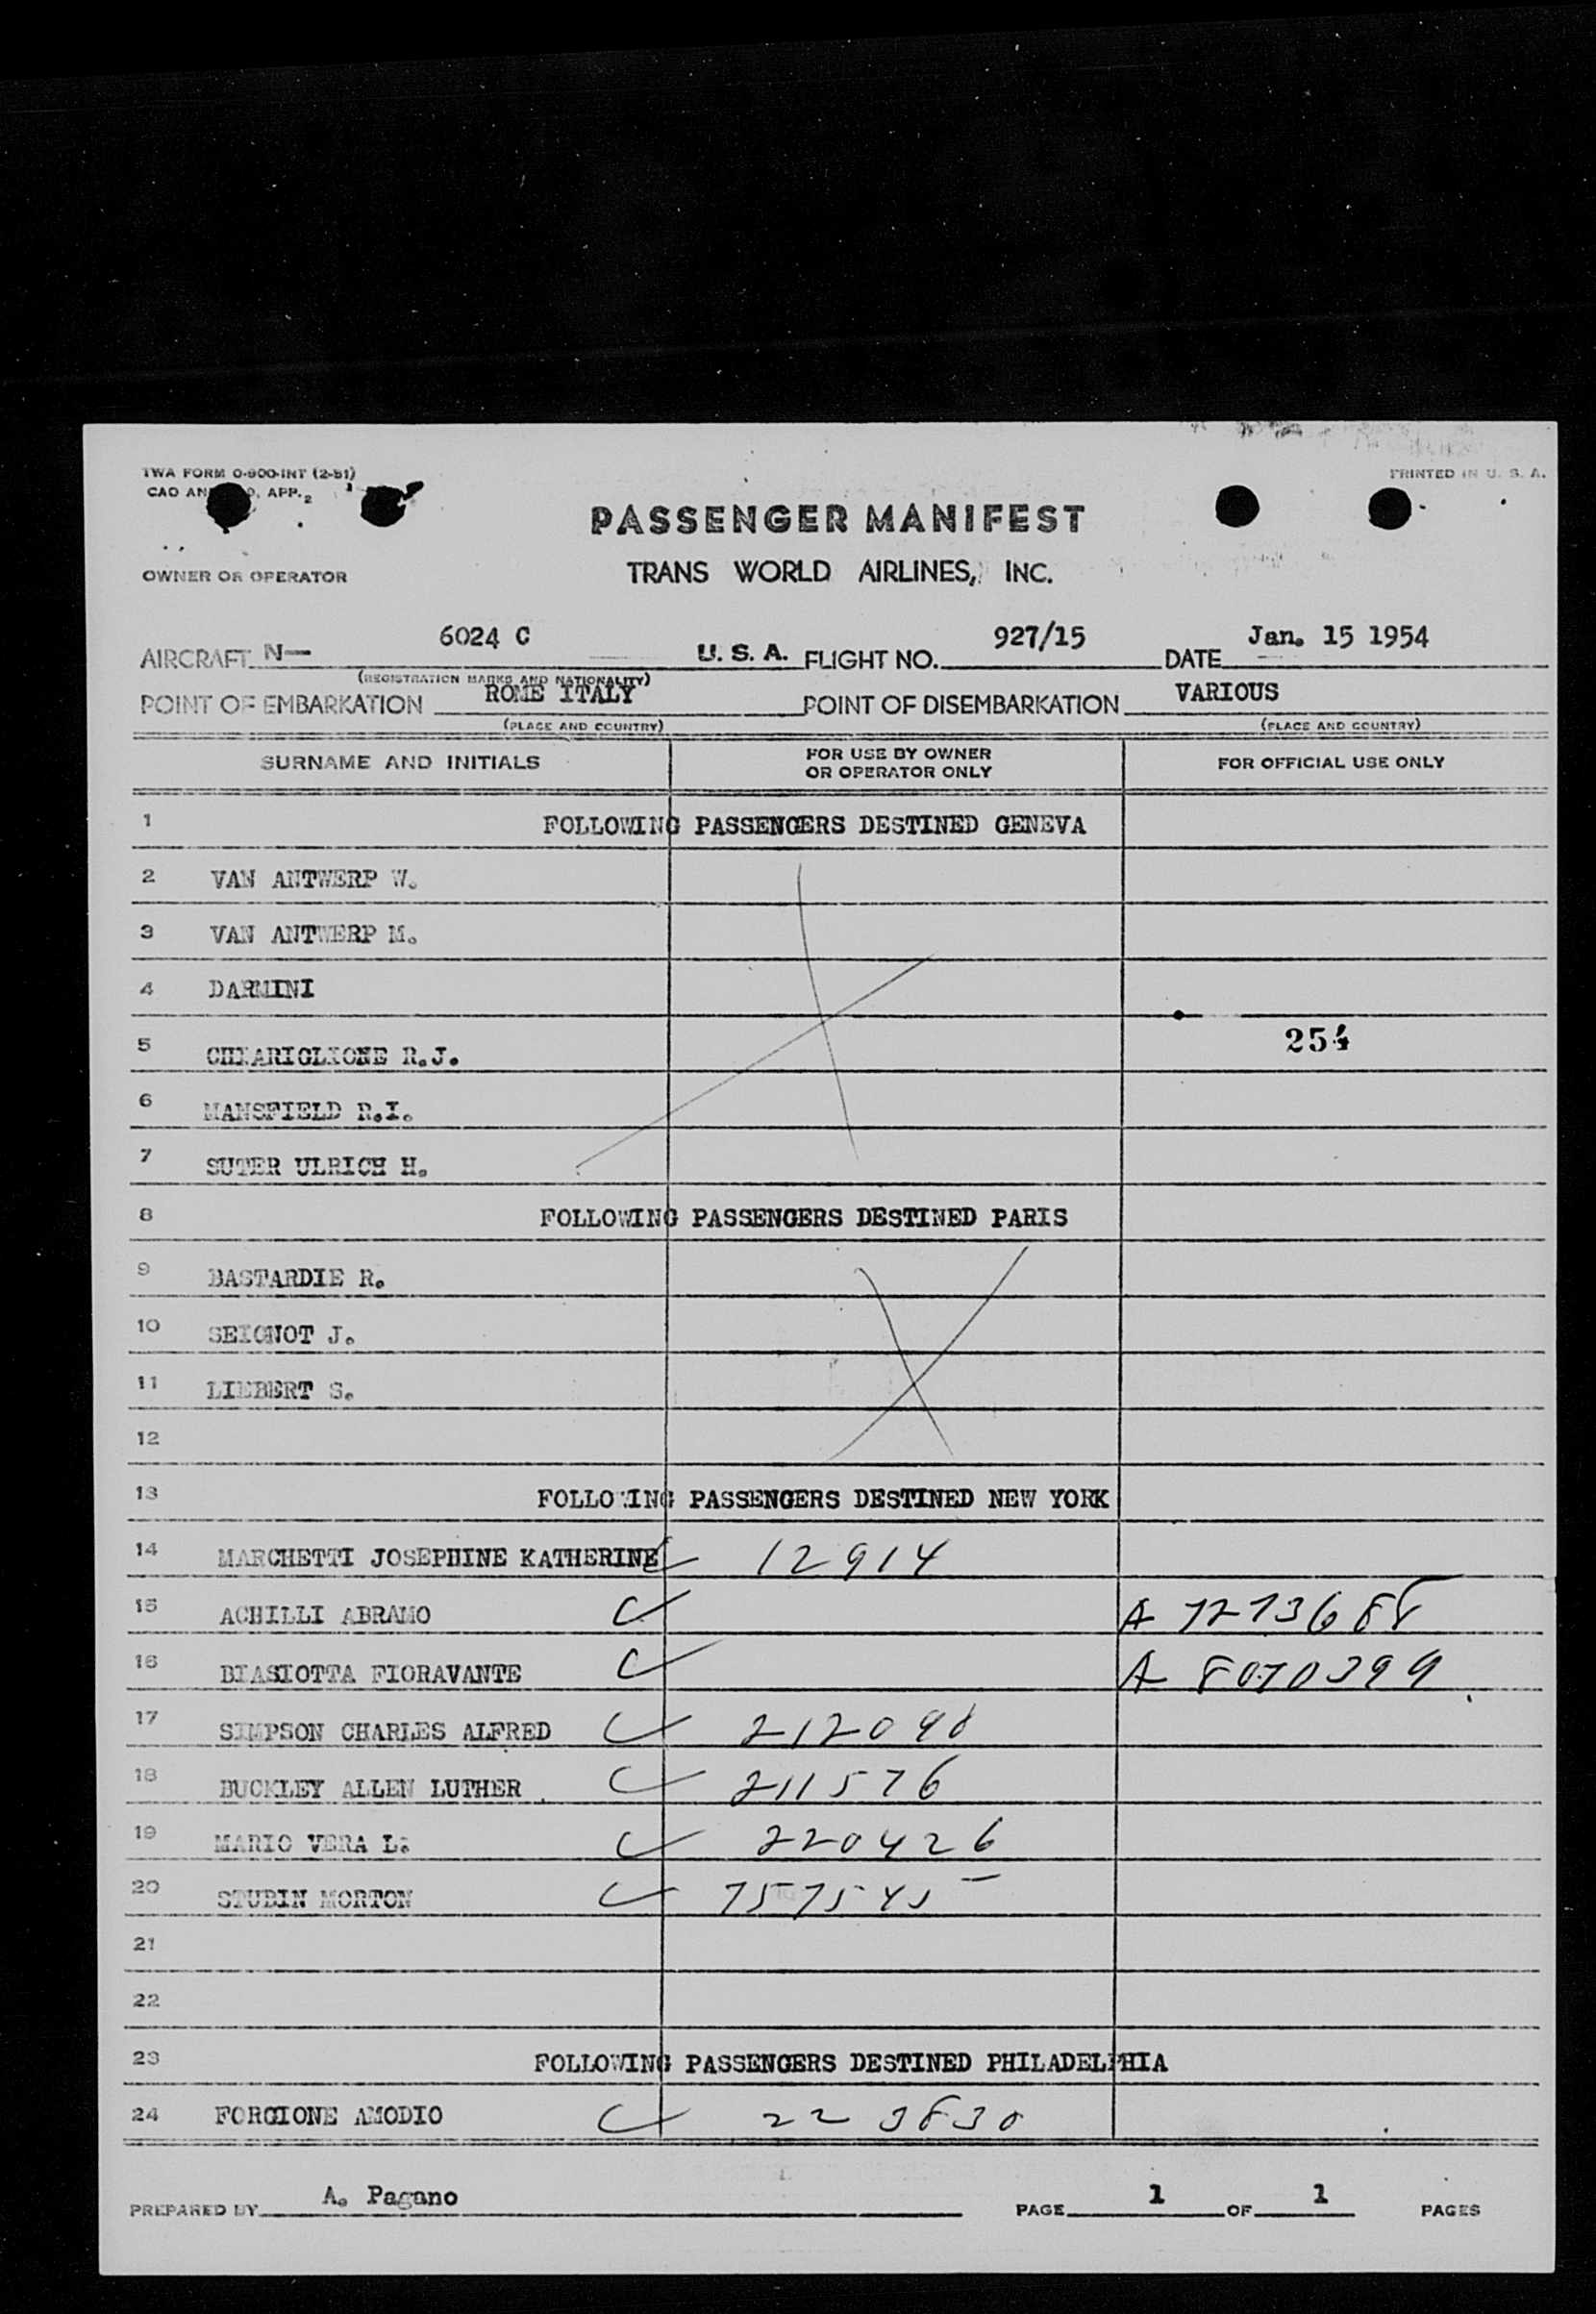 TWA FORM O-900-INT (2-51)
PRINTED IN U. S. A.
CAO AN D, APP. 2
PASSENGER MANIFEST
OWNER OR OPERATOR
TRANS WORLD AIRLINES, INC.
AIRCRAFT N— 6024 C U. S. A. FLIGHT NO. 927/15 DATE Jan. 15 1954
(REGISTRATION MARKS AND NATIONALITY)
POINT OF EMBARKATION ROME ITALY POINT OF DISEMBARKATION VARIOUS
(PLACE AND COUNTRY) (PLACE AND COUNTRY)
SURNAME AND INITIALS FOR USE BY OWNER OR OPERATOR ONLY FOR OFFICIAL USE ONLY
1 FOLLOWING PASSENGERS DESTINED GENEVA
2 VAN ANTWERP W.
3 VAN ANTWERP M.
4 DARMINI
5 CHIARIGLIONE R.J. 254
6 MANSFIELD R.I.
7 SUTER ULRICH H.
8 FOLLOWING PASSENGERS DESTINED PARIS
9 BASTARDIE R.
10 SEIGNOT J.
11 LIEBERT S.
12
13 FOLLOWING PASSENGERS DESTINED NEW YORK
14 MARCHETTI JOSEPHINE KATHERINE 12914
15 ACHILLI ABRAMO A
16 BIASIOTTA FIORAVANTE A 8070399
17 SIMPSON CHARLES ALFRED
18 BUCKLEY ALLEN LUTHER 211576
19 MARIO VERA L. 220426
20 STUBIN MORTON
21
22
23 FOLLOWING PASSENGERS DESTINED PHILADELPHIA
24 FORGIONE AMODIO 223830
PREPARED BY A. Pagano PAGE 1 OF 1 PAGES